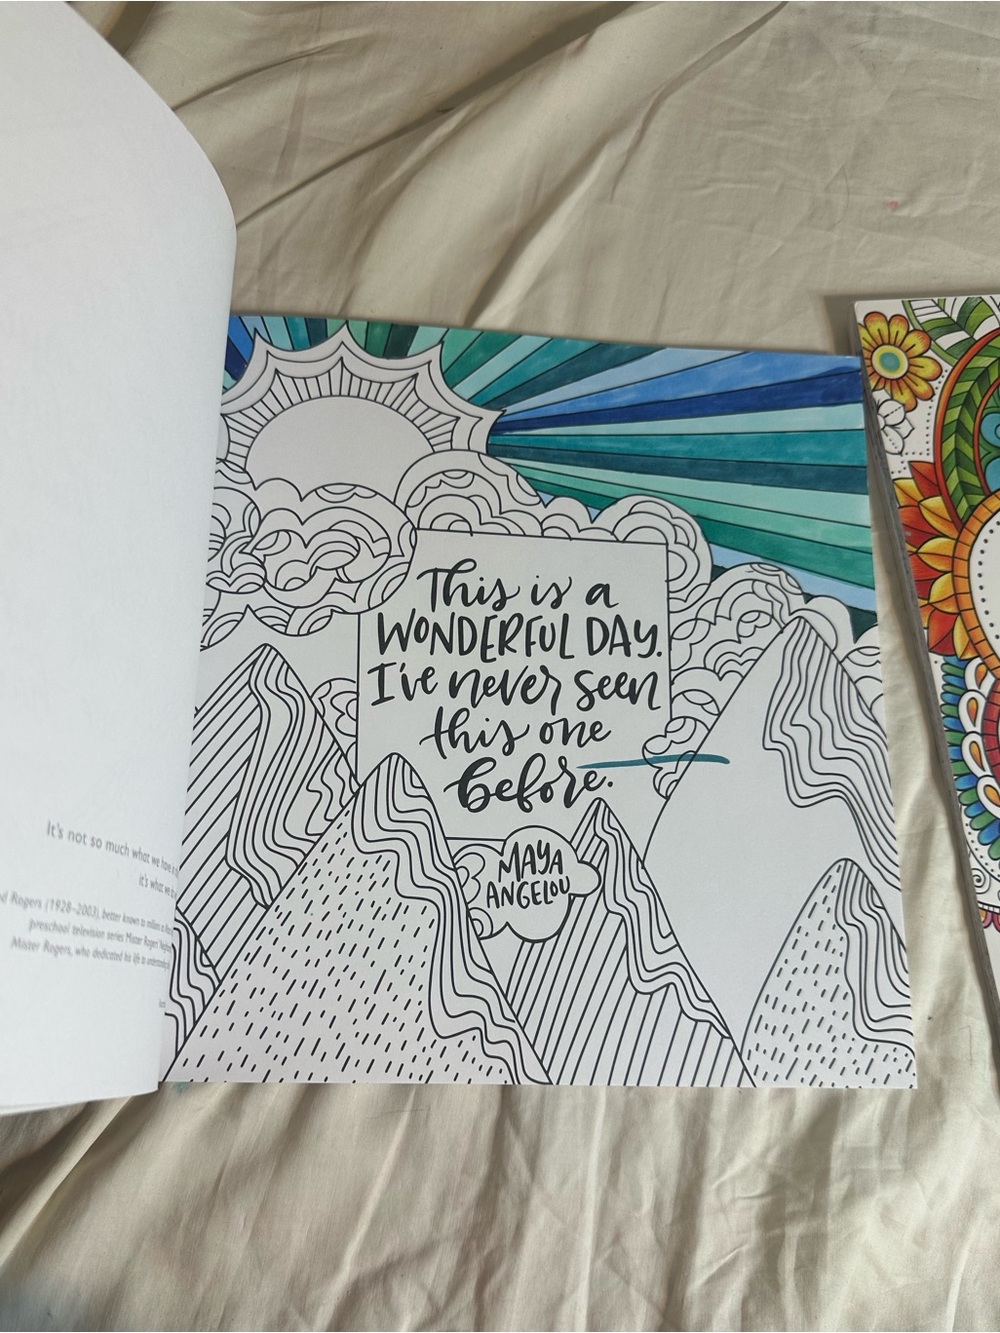 It's not so much what we have in
it's what we
Rogers (1928–2003), better known to millions
preschool television series Mister Rogers'
Mister Rogers, who dedicated his life to understanding
This is a
WONDERFUL DAY.
I've never seen
this one
before.
MAYA
ANGELOU